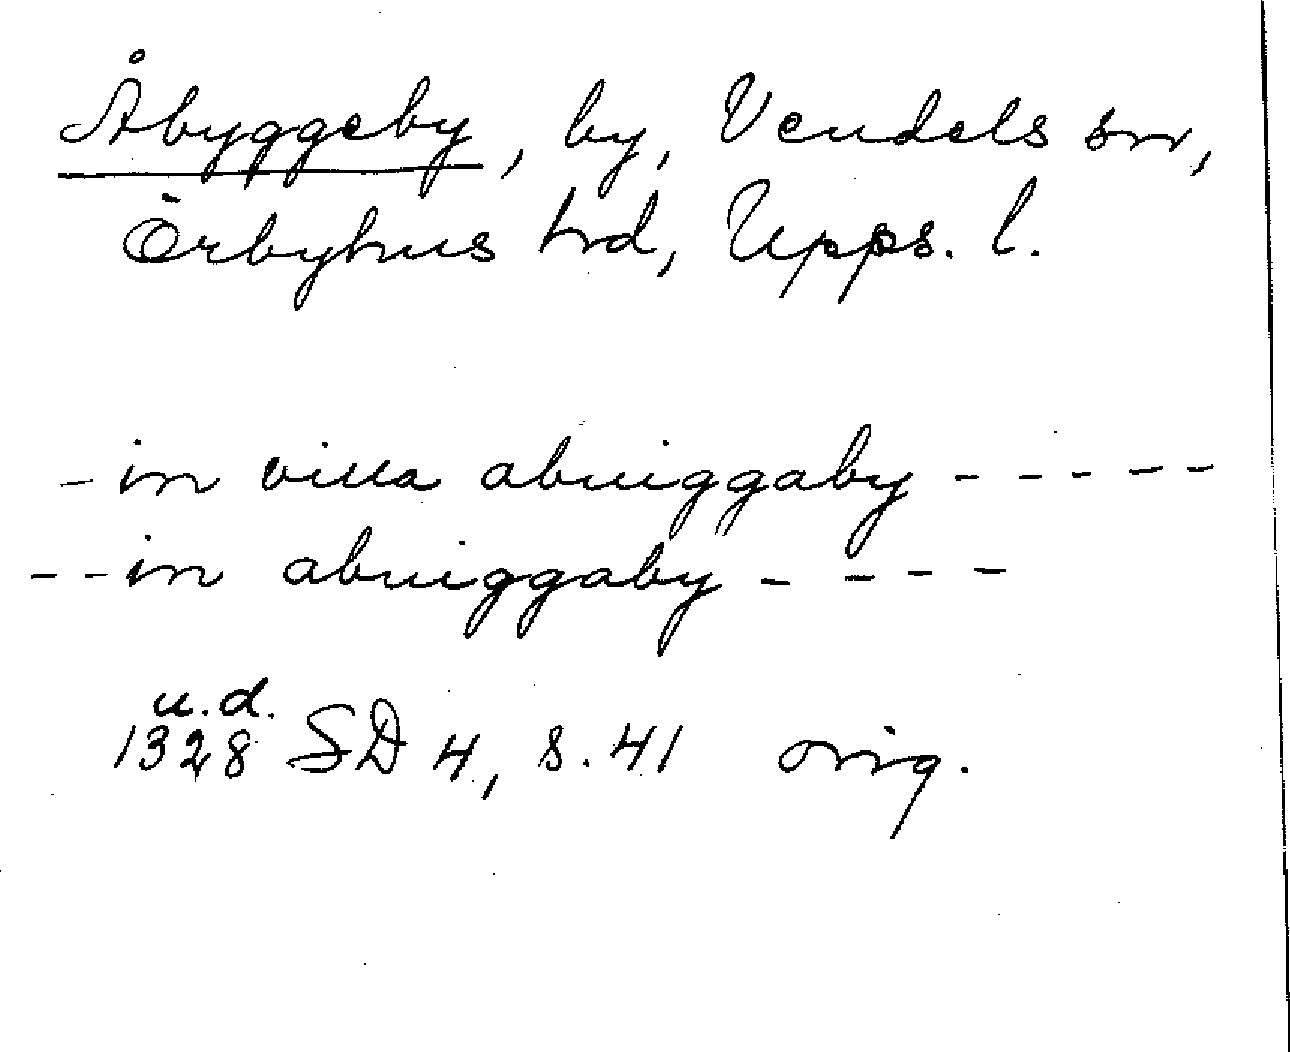 Åbyggeby, by, Vendels sn,
Örbyhus hd, Upps. l.
- in villa abuiggaby - - - - -
- - in abuiggaby - - - -
u.d.
1328 SD 4, s. 41 orig.